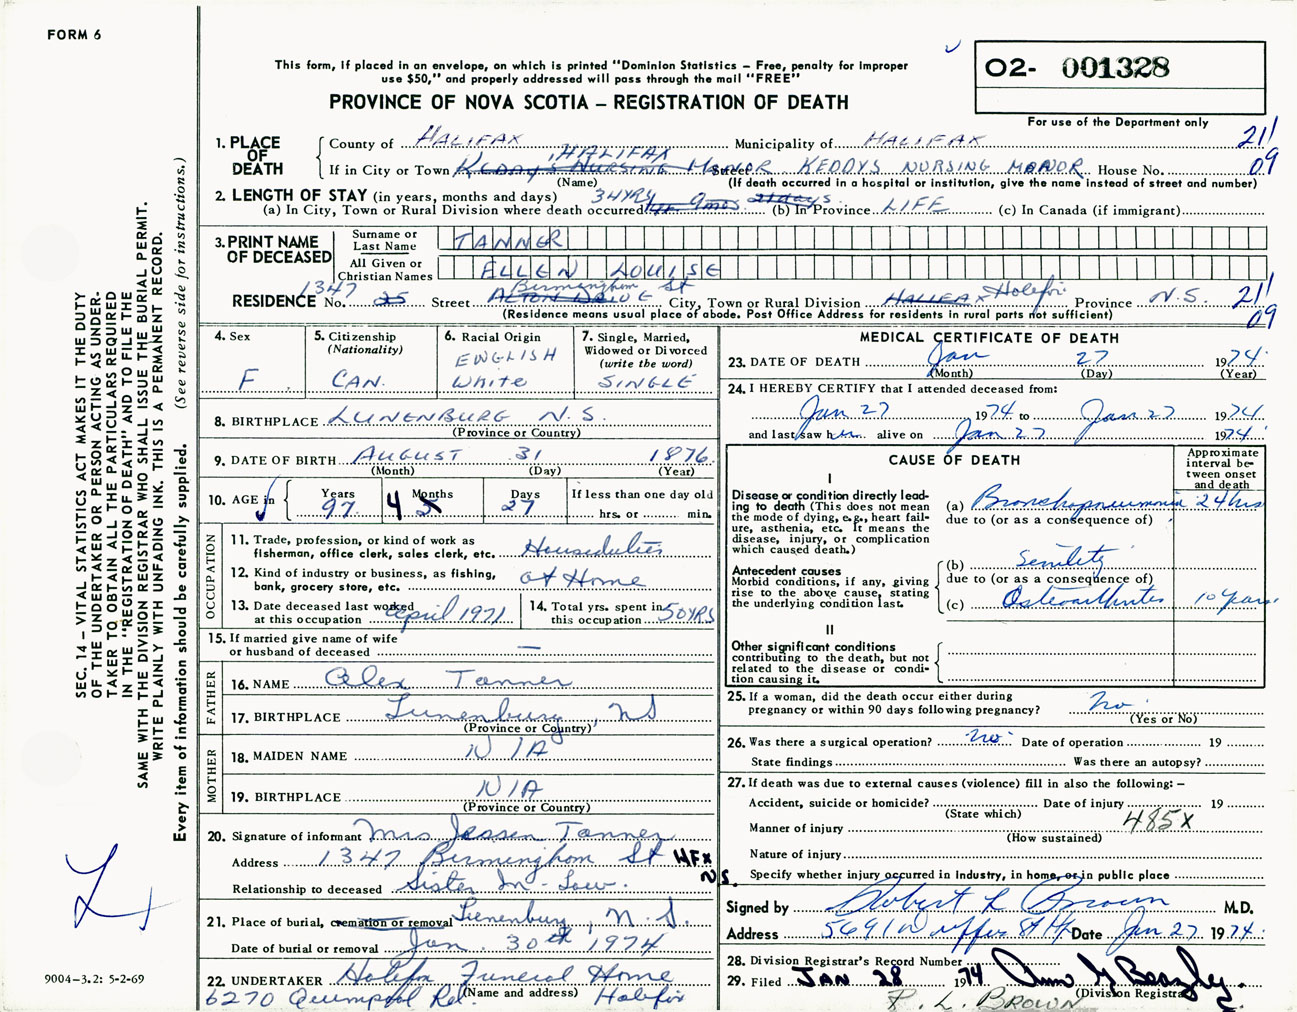 FORM 6
This form, if placed in an envelope, on which is printed "Dominion Statistics – Free, penalty for improper
use $50," and properly addressed will pass through the mail "FREE"
02- 001328
PROVINCE OF NOVA SCOTIA – REGISTRATION OF DEATH
For use of the Department only
SEC. 14 – VITAL STATISTICS ACT MAKES IT THE DUTY
OF THE UNDERTAKER OR PERSON ACTING AS UNDER-
TAKER TO OBTAIN ALL THE PARTICULARS REQUIRED
IN THE "REGISTRATION OF DEATH" AND TO FILE THE
SAME WITH THE DIVISION REGISTRAR WHO SHALL ISSUE THE BURIAL PERMIT.
WRITE PLAINLY WITH UNFADING INK. THIS IS A PERMANENT RECORD.
Every item of information should be carefully supplied. (See reverse side for instructions.)
1. PLACE OF DEATH County of HALIFAX Municipality of HALIFAX 211
If in City or Town KEDDY'S NURSING MANOR HALIFAX Street KEDDYS NURSING MANOR House No. 09
(Name) (If death occurred in a hospital or institution, give the name instead of street and number)
2. LENGTH OF STAY (in years, months and days)
(a) In City, Town or Rural Division where death occurred 34YRS 9mos 21days (b) In Province LIFE (c) In Canada (if immigrant)
3. PRINT NAME OF DECEASED Surname or Last Name TANNER
All Given or Christian Names ELLEN LOUISE
RESIDENCE No. 25 1347 Street ALTON DRIVE Birmingham St City, Town or Rural Division HALIFAX Halifax Province N.S. 211
(Residence means usual place of abode. Post Office Address for residents in rural parts not sufficient) 09
4. Sex F
5. Citizenship (Nationality) CAN.
6. Racial Origin ENGLISH White
7. Single, Married, Widowed or Divorced (write the word) SINGLE
8. BIRTHPLACE LUNENBURG N.S.
(Province or Country)
9. DATE OF BIRTH AUGUST 31 1876
(Month) (Day) (Year)
10. AGE in Years 97 Months 4 5 Days 27 If less than one day old hrs. or min.
OCCUPATION
11. Trade, profession, or kind of work as fisherman, office clerk, sales clerk, etc. Houseduties
12. Kind of industry or business, as fishing, bank, grocery store, etc. at Home
13. Date deceased last worked at this occupation April 1971
14. Total yrs. spent in this occupation 50YRS
15. If married give name of wife or husband of deceased —
FATHER
16. NAME Alex Tanner
17. BIRTHPLACE Lunenburg, NS
(Province or Country)
MOTHER
18. MAIDEN NAME N/A
19. BIRTHPLACE N/A
(Province or Country)
20. Signature of informant Mrs Jessen Tanner
Address 1347 Birmingham St HFX N.S.
Relationship to deceased Sister In-Law.
21. Place of burial, cremation or removal Lunenburg, N.S.
Date of burial or removal Jan 30th 1974
22. UNDERTAKER Halifax Funeral Home
(Name and address)
6270 Quinpool Rd Halifax
9004-3.2: 5-2-69
MEDICAL CERTIFICATE OF DEATH
23. DATE OF DEATH Jan 27 1974
(Month) (Day) (Year)
24. I HEREBY CERTIFY that I attended deceased from:
Jan 27 1974 to Jan 27 1974
and last saw her alive on Jan 27 1974
CAUSE OF DEATH
Approximate interval between onset and death
I
Disease or condition directly lead-
ing to death (This does not mean
the mode of dying, e.g., heart fail-
ure, asthenia, etc. It means the
disease, injury, or complication
which caused death.)
(a) Bronchopneumonia 24hrs
due to (or as a consequence of)
Antecedent causes
Morbid conditions, if any, giving
rise to the above cause, stating
the underlying condition last.
(b) Senility
due to (or as a consequence of)
(c) Osteoarthritis 10 years
II
Other significant conditions
contributing to the death, but not
related to the disease or condi-
tion causing it.
25. If a woman, did the death occur either during
pregnancy or within 90 days following pregnancy? No
(Yes or No)
26. Was there a surgical operation? no Date of operation 19
State findings Was there an autopsy?
27. If death was due to external causes (violence) fill in also the following: –
Accident, suicide or homicide? Date of injury 19
(State which)
Manner of injury 485X
(How sustained)
Nature of injury
Specify whether injury occurred in industry, in home, or in public place
Signed by Robert L Brown M.D.
Address 5691 Date Jan 27 1974
28. Division Registrar's Record Number
29. Filed JAN 28 1974
(Division Registrar)
R. L. BROWN